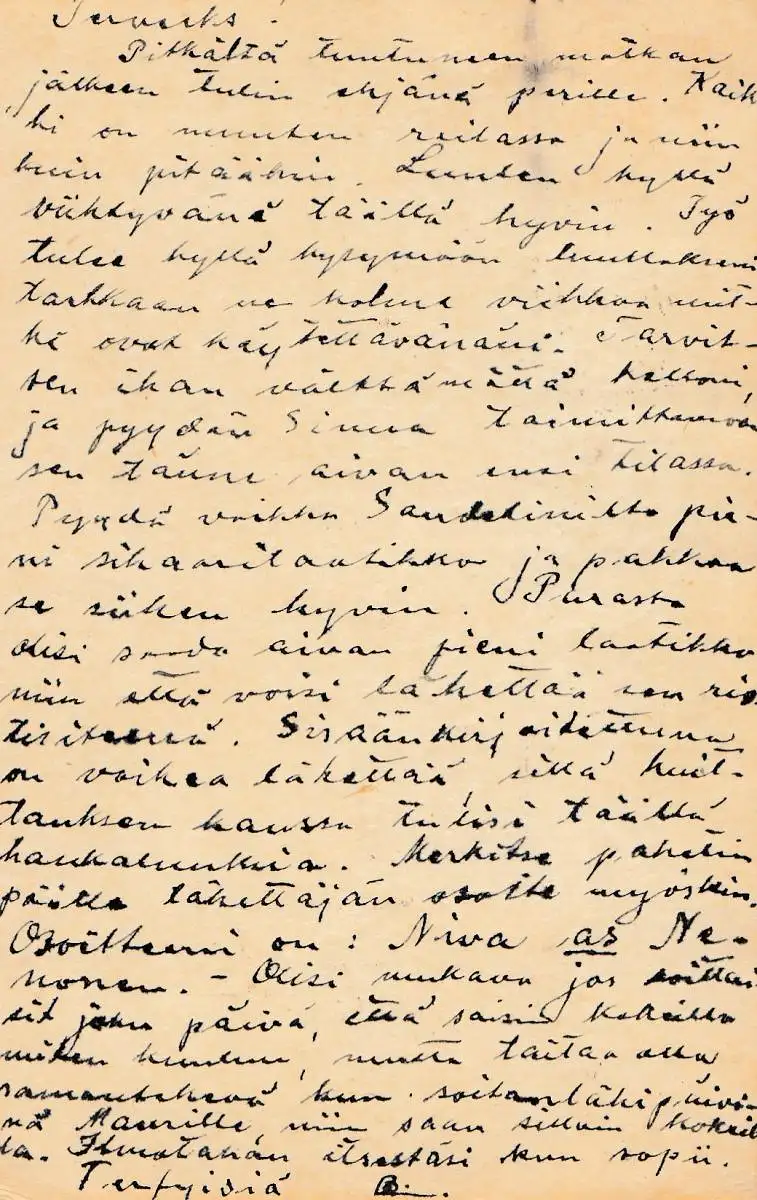 Terveeks!
Pitkältä tuntuneen matkan
jälkeen tulin ehjänä perille. Kaik-
ki on muuten reilassa ja niin
kuin pitääkin. Luulen kyllä
viihtyväni täällä hyvin. Työ
tulee kyllä kysymään luullakseni
tarkkaan ne kolme viikkoa mit-
kä ovat käytettävänäni. Tarvit-
sen ihan välttämättä kelloni,
ja pyydän Sinua toimittamaan
sen tänne aivan ensi tilassa.
Pyydä vaikka Sandelinilta pie-
ni sikaarilaatikko ja pakkaa
se siihen hyvin. Parasta
olisi saada aivan pieni laatikko
niin että voisi lähettää sen ris-
tisiteenä. Sisäänkirjoitettuna
on vaikea lähettää, sillä kuit-
tauksen kanssa tulisi täällä
hankaluuksia. Merkitse paketin
päälle lähettäjän osoite myöskin.
Osoitteeni on: Niva as Ne-
nonen. - Olisi mukava jos soittai-
sit joku päivä, että saisin kokeilla
miten kuuluu, mutta taitaa olla
samantekevä kun soitan lähipäivi-
nä Maurille niin saan silloin kokeil-
la. Ilmotahan itsestäsi kun sopii.
Terfyisiä